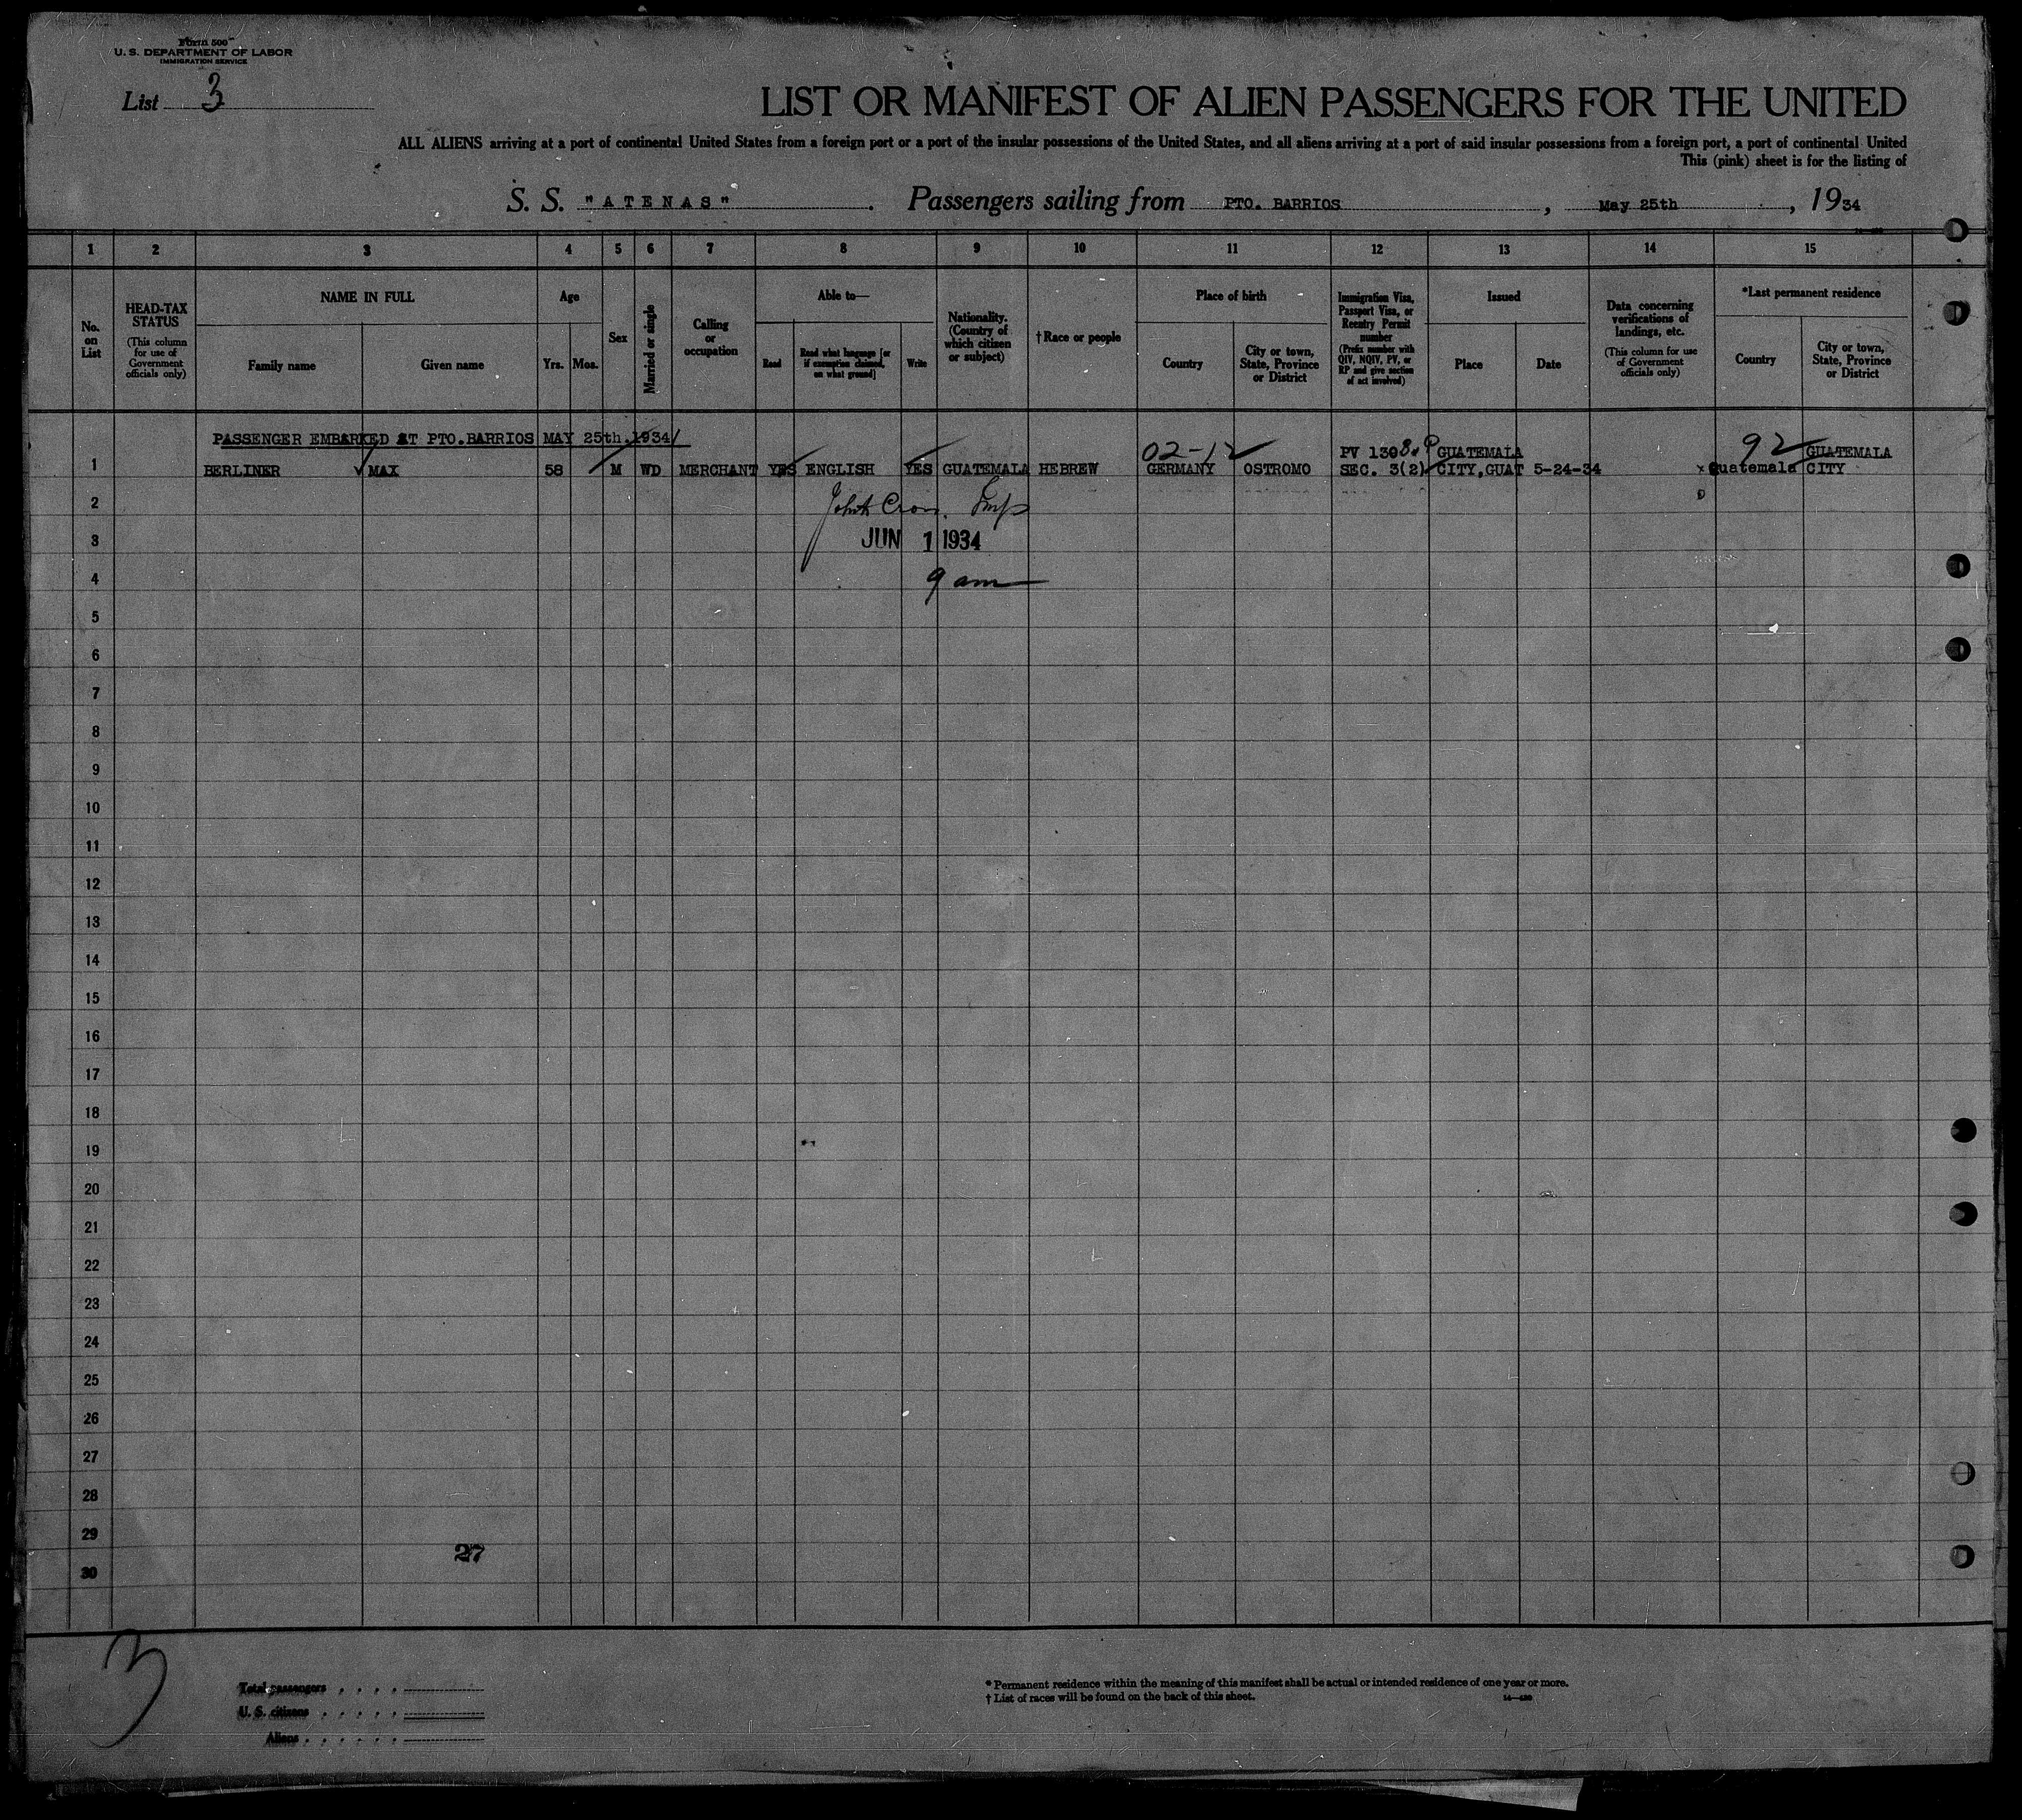 Form 500
U. S. DEPARTMENT OF LABOR
IMMIGRATION SERVICE
List 3
LIST OR MANIFEST OF ALIEN PASSENGERS FOR THE UNITED
ALL ALIENS arriving at a port of continental United States from a foreign port or a port of the insular possessions of the United States, and all aliens arriving at a port of said insular possessions from a foreign port, a port of continental United
This (pink) sheet is for the listing of
S. S. "ATENAS" . Passengers sailing from PTO. BARRIOS , May 25th , 1934
1 2 3 4 5 6 7 8 9 10 11 12 13 14 15
No. on List
HEAD-TAX STATUS
(This column for use of Government officials only)
NAME IN FULL
Family name
Given name
Age
Yrs. Mos.
Sex
Married or single
Calling or occupation
Able to—
Read
Read what language [or if exemption claimed, on what ground]
Write
Nationality. (Country of which citizen or subject)
† Race or people
Place of birth
Country
City or town, State, Province or District
Immigration Visa, Passport Visa, or Reentry Permit number
(Prefix number with QIV, NQIV, PV, or RP and give section of act involved)
Issued
Place
Date
Data concerning verifications of landings, etc.
(This column for use of Government officials only)
*Last permanent residence
Country
City or town, State, Province or District
PASSENGER EMBARKED AT PTO.BARRIOS MAY 25th.1934
02-12 PV 1308 GUATEMALA 92 GUATEMALA
1 BERLINER MAX 58 M WD MERCHANT YES ENGLISH YES GUATEMALA HEBREW GERMANY OSTROMO SEC. 3(2) CITY,GUAT 5-24-34 x Guatemala CITY
2
3 JUN 1 1934
4 9 am
5
6
7
8
9
10
11
12
13
14
15
16
17
18
19
20
21
22
23
24
25
26
27
28
29
27
30
3
Total passengers
U. S. citizens
Aliens
* Permanent residence within the meaning of this manifest shall be actual or intended residence of one year or more.
† List of races will be found on the back of this sheet.